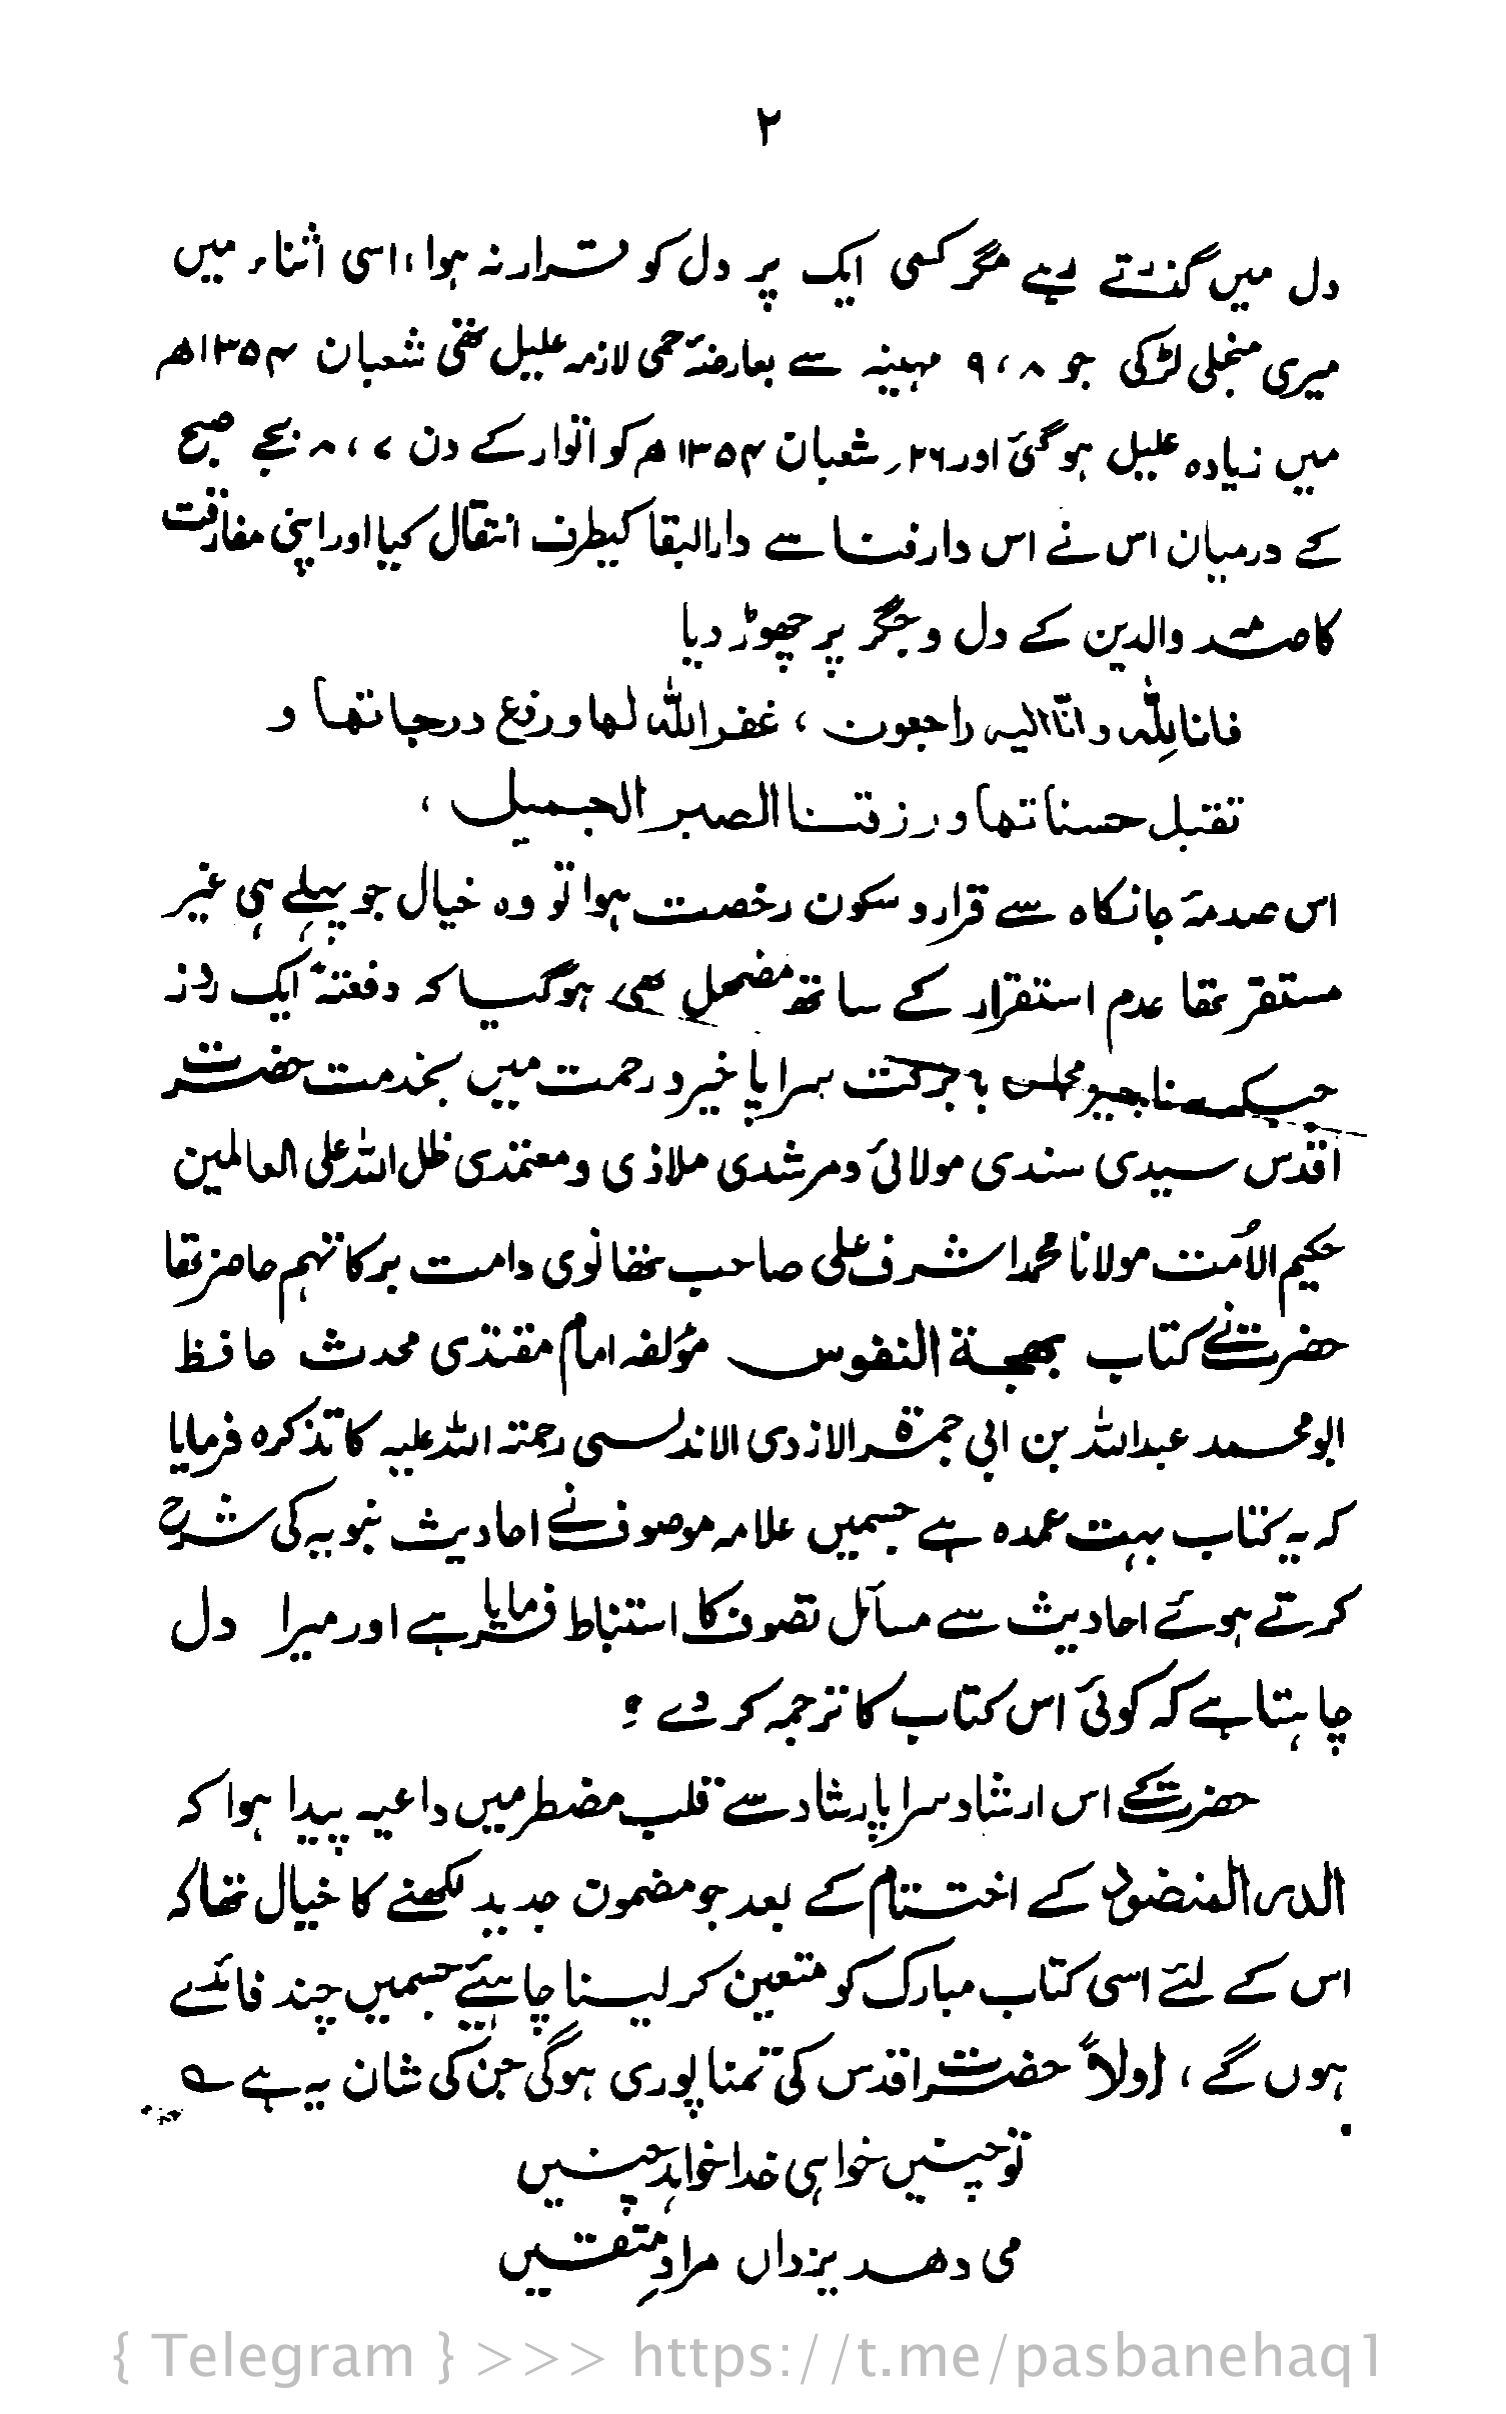 ۲
دل میں گذرتے رہے مگر کسی ایک پر دل کو قرار نہ ہوا، اسی اثناء میں
میری منجلی لڑکی جو ۸، ۹ مہینہ سے بعارضۂ حمی لازمہ علیل تھی شعبان ۱۳۵۴ھ
میں زیادہ علیل ہوگئی اور ۲۶؍ شعبان ۱۳۵۴ھ کو اتوار کے دن ۷، ۸ بجے صبح
کے درمیان اس نے اس دار فنا سے دار البقا کیطرف انتقال کیا اور اپنی مفارقت
کا صدمہ والدین کے دل و جگر پر چھوڑ دیا
فانا للّٰہ و انّا الیہ راجعون ، غفر اللّٰہ لھا و رفع درجاتھا و
تقبل حسناتھا و رزقنا الصبر الجمیل ،
اس صدمۂ جانکاہ سے قرار و سکون رخصت ہوا تو وہ خیال جو پہلے ہی غیر
مستقر تھا عدم استقرار کے ساتھ مضمحل بھی ہوگیا کہ دفعتہً ایک روز
جبکہ ناچیز مجلس با برکت سراپا خیر و رحمت میں بخدمت حضرت
اقدس سیدی سندی مولائی و مرشدی ملاذی و معتمدی ظل اللہ علی العالمین
حکیم الاُمت مولانا محمد اشرف علی صاحب تھانوی دامت برکاتہم حاضر تھا
حضرت نے کتاب بھجۃ النفوس مؤلفہ امام مقتدی محدث حافظ
ابو محمد عبداللہ بن ابی جمرۃ الازدی الاندلسی رحمتہ اللہ علیہ کا تذکرہ فرمایا
کہ یہ کتاب بہت عمدہ ہے جسمیں علامہ موصوف نے احادیث نبویہ کی شرح
کرتے ہوئے احادیث سے مسائل تصوف کا استنباط فرمایا ہے اور میرا دل
چاہتا ہے کہ کوئی اس کتاب کا ترجمہ کر دے ؟
حضرت کے اس ارشاد سراپا رشاد سے قلب مضطر میں داعیہ پیدا ہوا کہ
الدر المنضود کے اختتام کے بعد جو مضمون جدید لکھنے کا خیال تھا کہ
اس کے لئے اسی کتاب مبارک کو متعین کر لینا چاہئیے جسمیں چند فائدے
ہوں گے ، اولاً حضرت اقدس کی تمنا پوری ہوگی جن کی شان یہ ہے ؎
تو چنیں خواہی خدا خواہد چنیں
می دھد یزداں مرادِ متقیں
{ Telegram } >>> https://t.me/pasbanehaq1